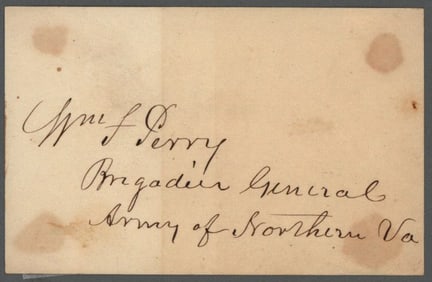 Wm F Perry
Brigadier General
Army of Northern Va